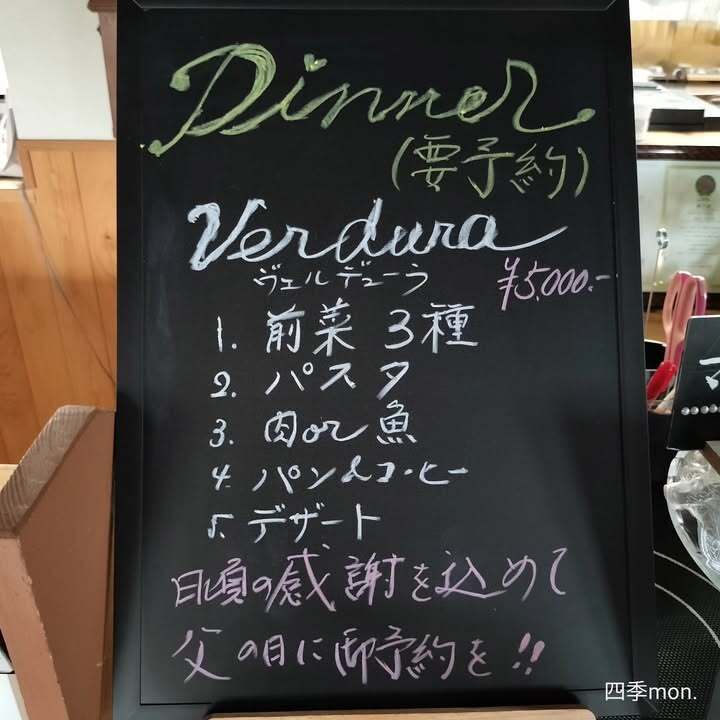 Dinner
(要予約)
Verdura
ヴェルデューラ
¥5.000.-
1. 前菜 3種
2. パスタ
3. 肉or魚
4. パン&コーヒー
5. デザート
日頃の感謝を込めて
父の日に御予約を!!
四季mon.